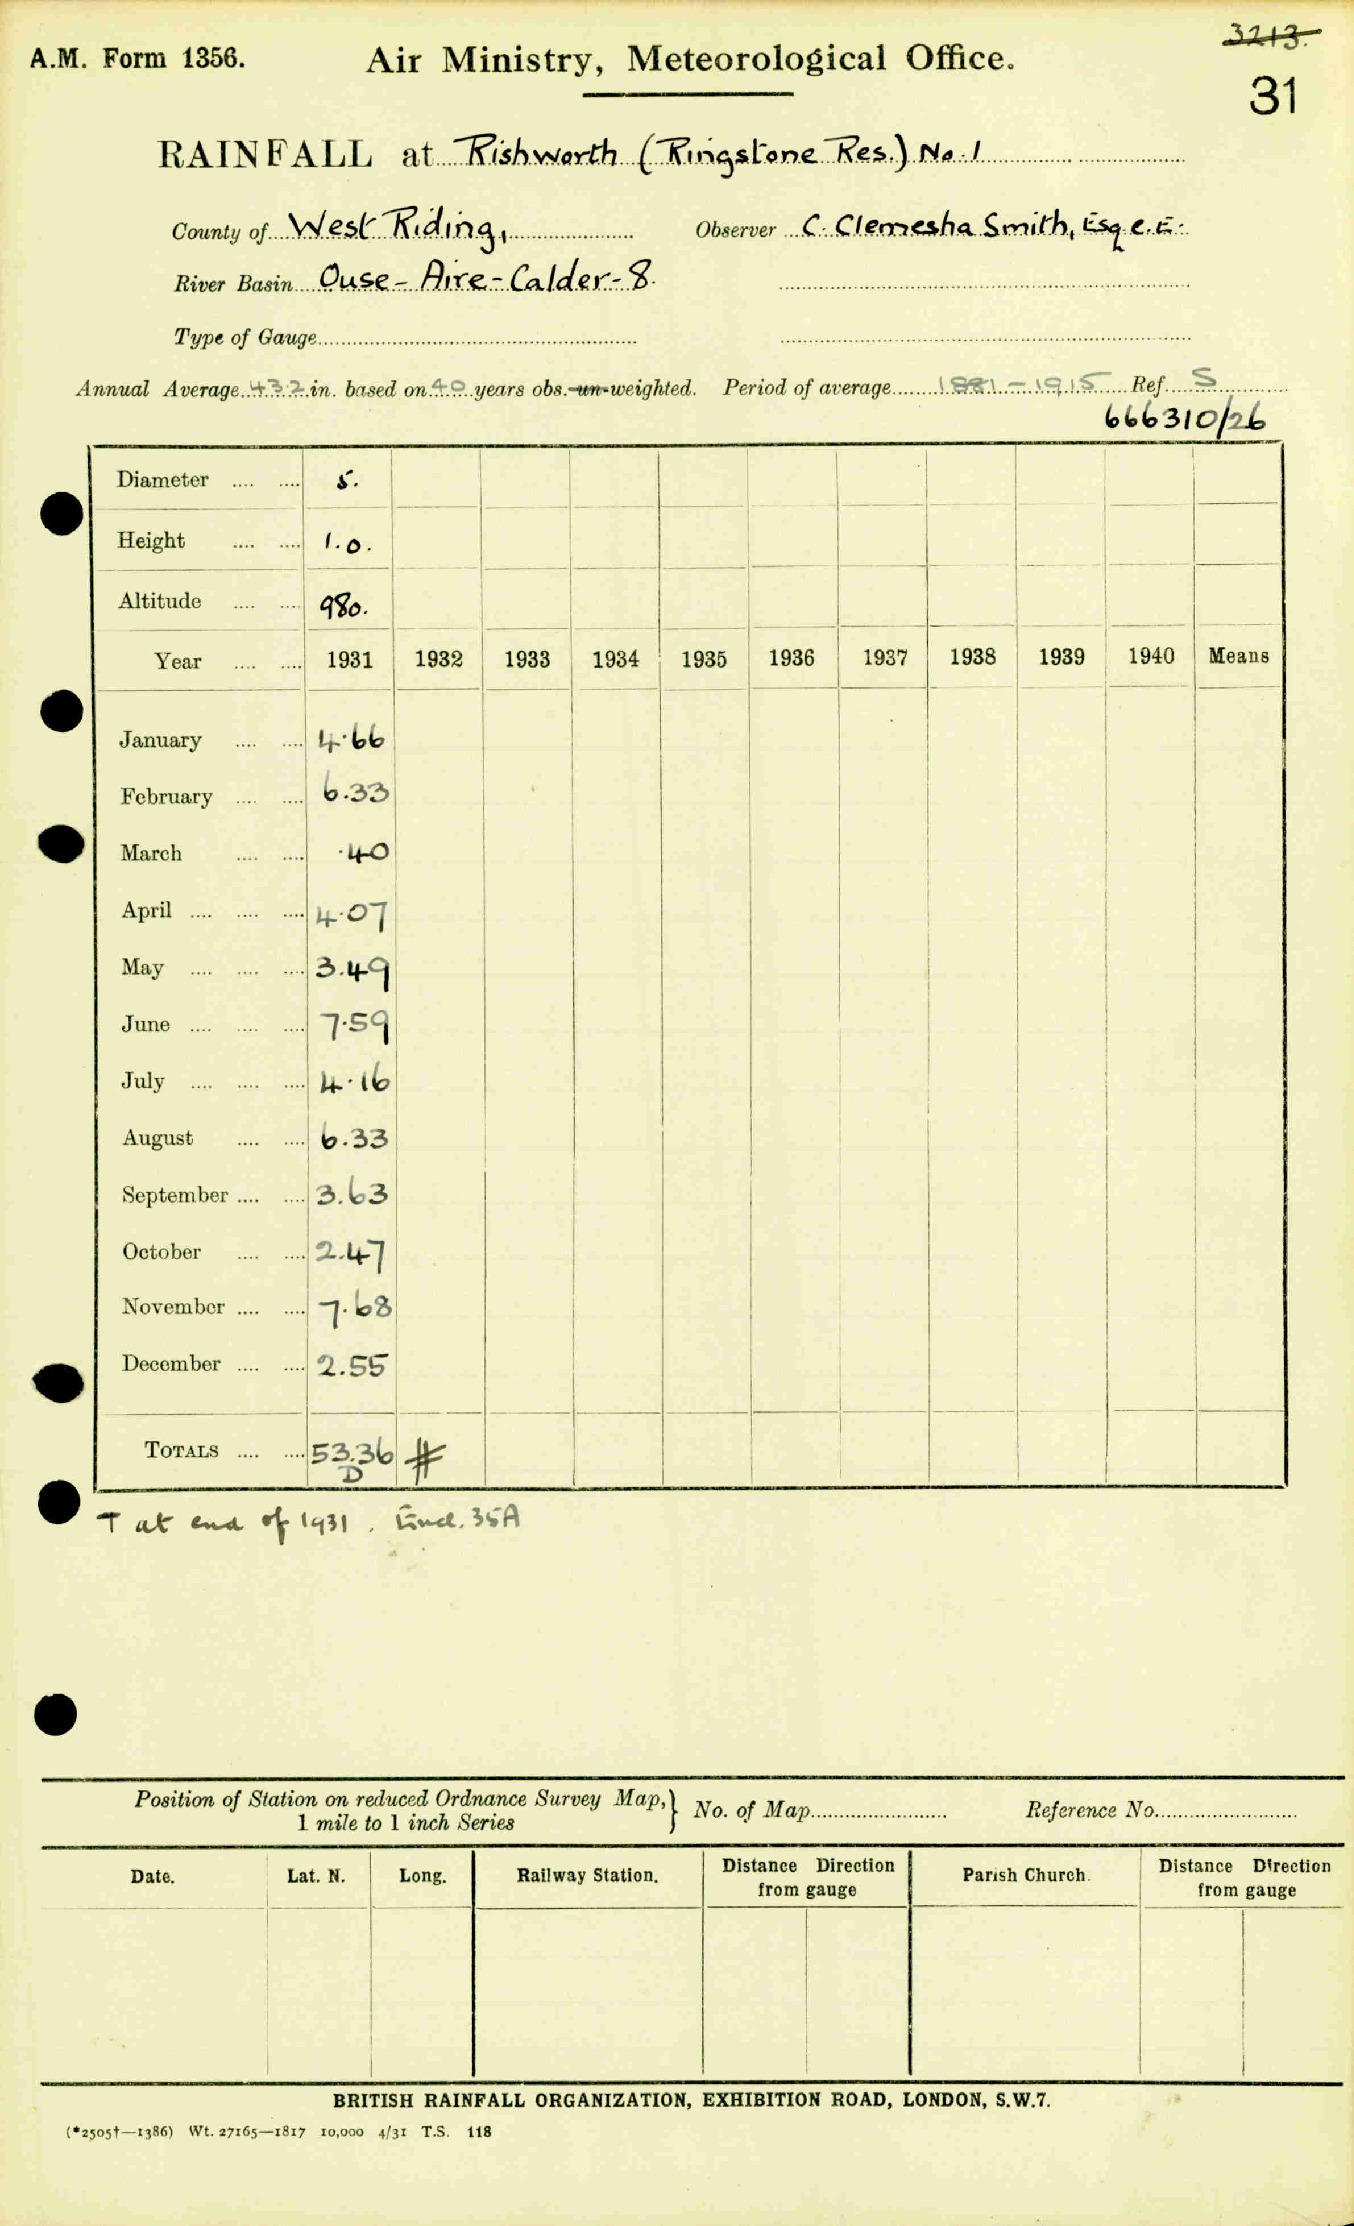 3213.
A.M. Form 1356. Air Ministry, Meteorological Office.
31
RAINFALL at Rishworth (Ringstone Res.) No. 1
County of West Riding, Observer C. Clemesha Smith, Esq C.E.
River Basin Ouse - Aire - Calder - 8.
Type of Gauge
Annual Average 43.2 in. based on 40 years obs. un-weighted. Period of average 1881 - 1915 Ref. S
666310/26
Diameter .... .... 5.
Height .... .... 1.0.
Altitude .... .... 980.
Year .... .... 1931 1932 1933 1934 1935 1936 1937 1938 1939 1940 Means
January .... .... 4.66
February .... .... 6.33
March .... .... .40
April .... .... .... 4.07
May .... .... .... 3.49
June .... .... .... 7.59
July .... .... .... 4.16
August .... .... 6.33
September .... .... 3.63
October .... .... 2.47
November .... .... 7.68
December .... .... 2.55
TOTALS .... .... 53.36 #
D
T at end of 1931. Encl. 35A
Position of Station on reduced Ordnance Survey Map, } No. of Map Reference No.
1 mile to 1 inch Series
Date. Lat. N. Long. Railway Station. Distance Direction from gauge Parish Church. Distance Direction from gauge
BRITISH RAINFALL ORGANIZATION, EXHIBITION ROAD, LONDON, S.W.7.
(*2505†—1386) Wt. 27165—1817 10,000 4/31 T.S. 118